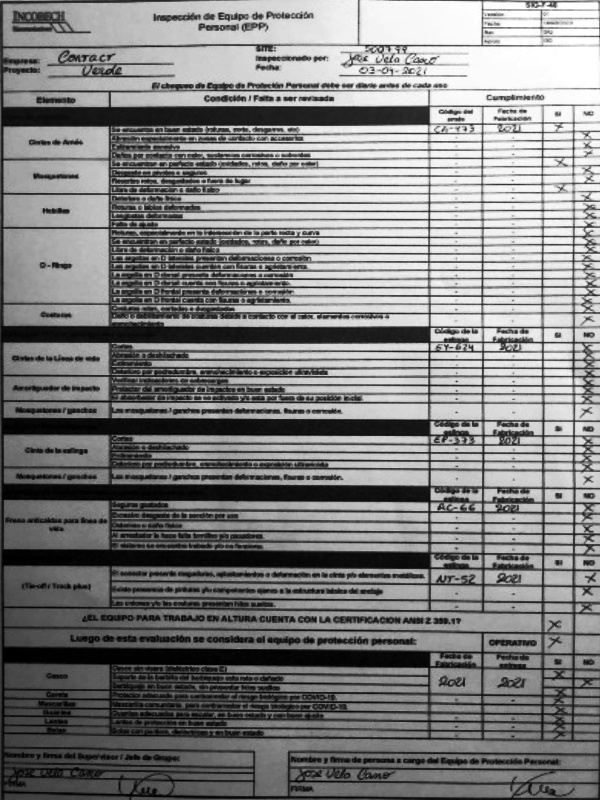 INCOBECH
Inspección de Equipo de Protección Personal (EPP)
SIG-F-46
Empresa: Contact
Proyecto: Verde
SITE: 500799
Inspeccionado por: Jose Vela Cano
Fecha: 03-04-2021
El chequeo de Equipo de Protección Personal debe ser diario antes de cada uso
Elemento Condición / Falta a ser revisada Cumplimiento
Código del arnés Fecha de Fabricación SI NO
Cintas de Arnés
Se encuentran en buen estado CA-473 2021 X
Abrasión especialmente en zonas de contacto con accesorios
Estiramiento excesivo
Daños por contacto con calor, sustancias corrosivas o solventes
Mosquetones
Se encuentran en perfecto estado (oxidados, rotos, daño por calor)
Desgaste en pivotes o seguros
Resortes rotos, desgastados o fuera de lugar
Libre de deformación o daño físico
Hebillas
Deterioro o daño físico
Longitudes deformadas
Falta de ajuste
D - Rings
Roturas, especialmente en la intersección de la parte recta y curva
Se encuentran en perfecto estado (oxidados, rotos, daño por calor)
Libre de deformación o daño físico
Las argollas en D laterales presentan deformaciones o corrosión
Las argollas en D laterales cuentan con fisuras o agrietamiento.
La argolla en D dorsal presenta deformaciones o corrosión
La argolla en D dorsal cuenta con fisuras o agrietamiento.
La argolla en D frontal presenta deformaciones o corrosión.
La argolla en D frontal cuenta con fisuras o agrietamiento.
Costuras
Costuras rotas, cortadas o desgastadas
Código de la eslinga Fecha de Fabricación SI NO
Cintas de la Línea de vida
Cortes EY-624 2021
Abrasión o deshilachado
Estiramiento
Deterioro por podredumbre, enmohecimiento o exposición ultravioleta
Amortiguador de impacto
Verificar indicadores de sobrecargas
Protector del amortiguador de impactos en buen estado
El absorbedor de impacto se ha activado y/o esta por fuera de su posición inicial
Mosquetones / ganchos Los mosquetones / ganchos presentan deformaciones, fisuras o corrosión.
Código de la eslinga Fecha de Fabricación SI NO
Cinta de la eslinga
Cortes EP-373 2021
Abrasión o deshilachado
Estiramiento
Deterioro por podredumbre, enmohecimiento o exposición ultravioleta
Mosquetones / ganchos Los mosquetones / ganchos presentan deformaciones, fisuras o corrosión.
Código de la eslinga Fecha de Fabricación SI NO
Freno anticaídas para línea de vida
Seguros gastados AC-66 2021
Excesivo desgaste de la sección por uso
Deterioro o daño físico
El sistema se encuentra trabado y/o no funciona.
Código de la eslinga Fecha de Fabricación SI NO
(Tie-off / Track plus)
NT-52 2021 X
¿EL EQUIPO PARA TRABAJO EN ALTURA CUENTA CON LA CERTIFICACION ANSI Z 359.1? X
Luego de esta evaluación se considera el equipo de protección personal: OPERATIVO X
Fecha de Fabricación Fecha de eslinga SI NO
Casco
Casco sin visera (dieléctrico clase E) 2021 2021
Careta Protector adecuado para contrarrestar el riesgo biológico por COVID-19.
Mascarillas Mascarilla comunitaria, para contrarrestar el riesgo biológico por COVID-19.
Guantes Guantes adecuados para escalar, en buen estado y con buen ajuste
Lentes Lentes de protección en buen estado
Botas Botas con puntera, dieléctricas y en buen estado
Nombre y firma del Supervisor / Jefe de Grupo:
Jose Vela Cano
FIRMA
Nombre y firma de persona a cargo del Equipo de Protección Personal:
Jose Vela Cano
FIRMA